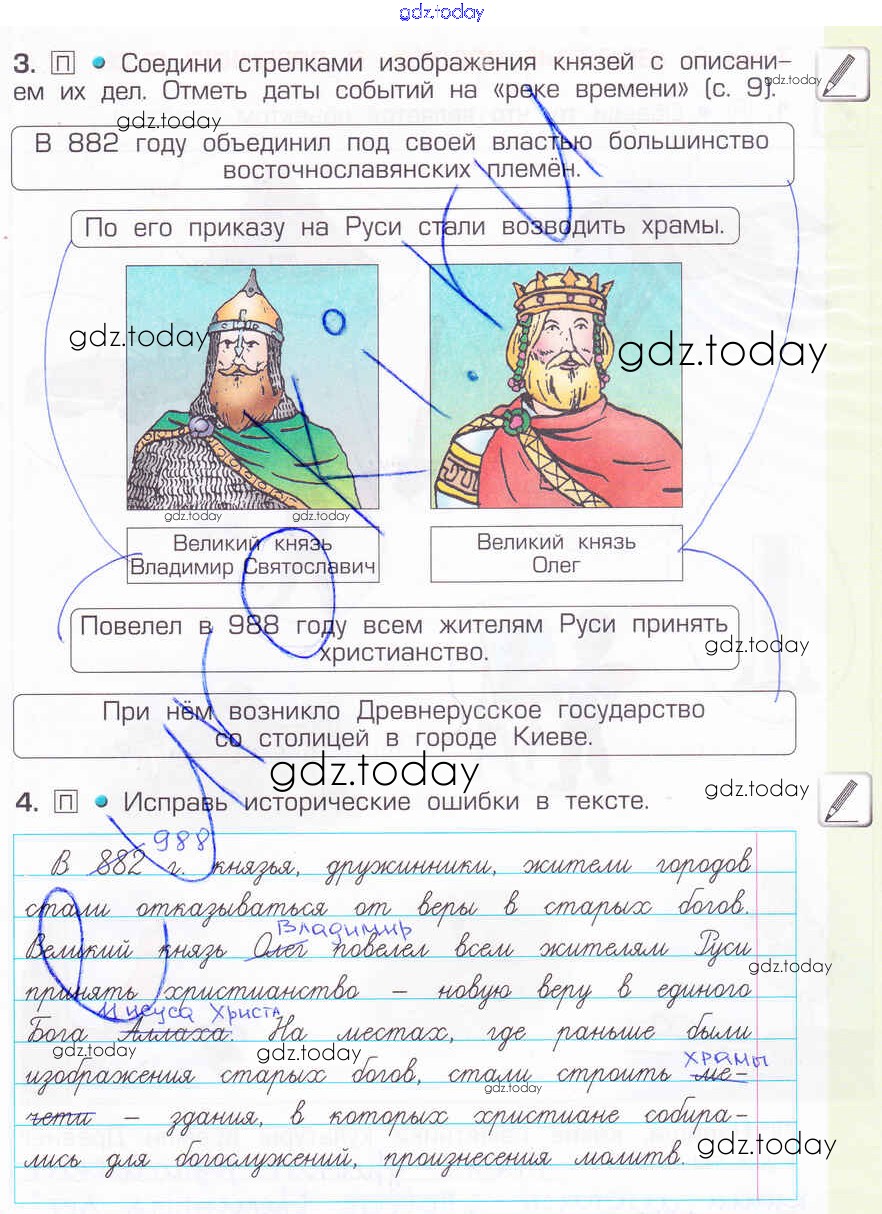 gdz.today
3. П • Соедини стрелками изображения князей с описани-
ем их дел. Отметь даты событий на «реке времени» (с. 9).
gdz.today
gdz.today
В 882 году объединил под своей властью большинство
восточнославянских племён.
По его приказу на Руси стали возводить храмы.
gdz.today
gdz.today
gdz.today
gdz.today
Великий князь
Владимир Святославич
Великий князь
Олег
Повелел в 988 году всем жителям Руси принять
христианство.
gdz.today
При нём возникло Древнерусское государство
со столицей в городе Киеве.
gdz.today
gdz.today
4. П • Исправь исторические ошибки в тексте.
988
В 882 г. князья, дружинники, жители городов
стали отказываться от веры в старых богов.
Владимир
Великий князь Олег повелел всем жителям Руси
gdz.today
принять христианство – новую веру в единого
Иисуса Христа
Бога Аллаха. На местах, где раньше были
gdz.today
gdz.today
храмы
изображения старых богов, стали строить ме-
gdz.today
чети – здания, в которых христиане собира-
gdz.today
лись для богослужений, произнесения молитв.